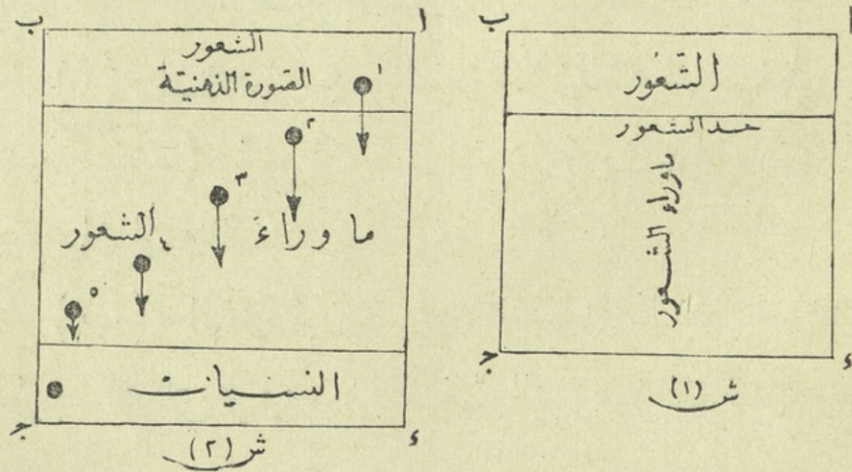 ا ب
الشعور
حد الشعور
ما وراء الشعور
ء ج
ش (١)
ا ب
الشعور
الصورة الذهنية
١
٢
٣
ما وراء الشعور
٤
٥
النسيان
ء ج
ش (٢)